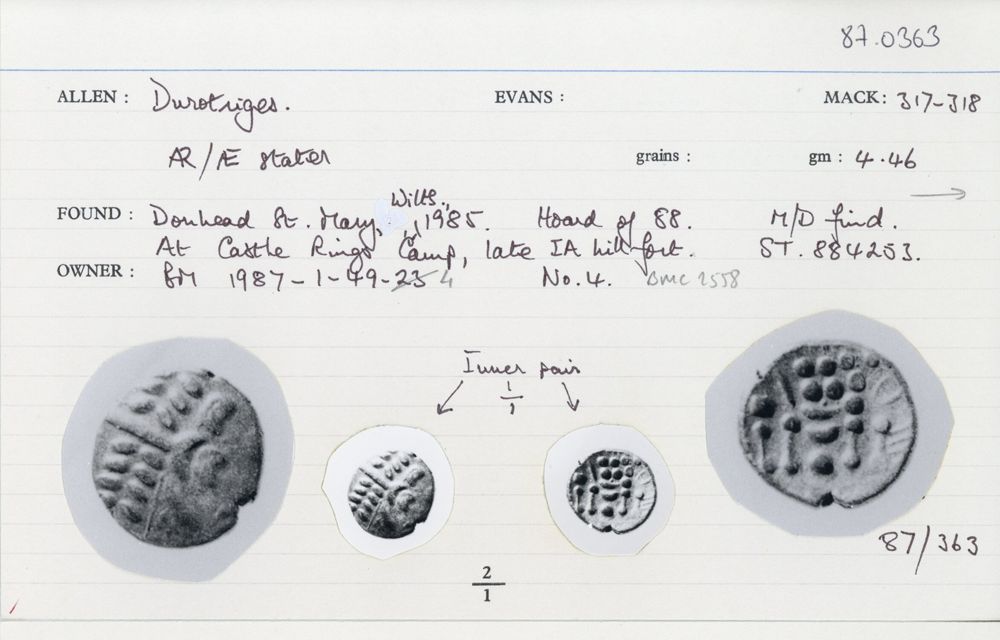 87.0363
ALLEN : Durotriges. EVANS : MACK: 317-318
AR/Æ Stater grains : gm : 4.46
FOUND : Donhead St. Mary, Wilts., 1985. Hoard of 88. M/D find. →
At Castle Rings Camp, late IA hill-fort. ST. 884253.
OWNER : BM 1987-1-49-4 No. 4. BMC 2558
Inner pair
1/1
87/363
2/1